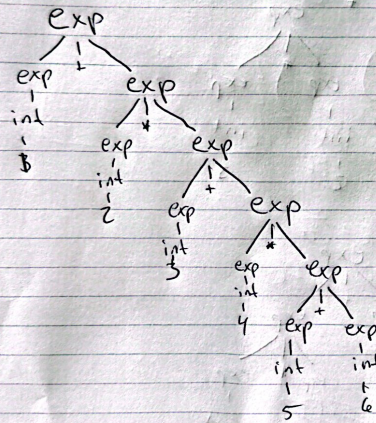 exp
exp + exp
int exp * exp
int exp + exp
2 int exp * exp
3 int exp + exp
4 int int
5 6